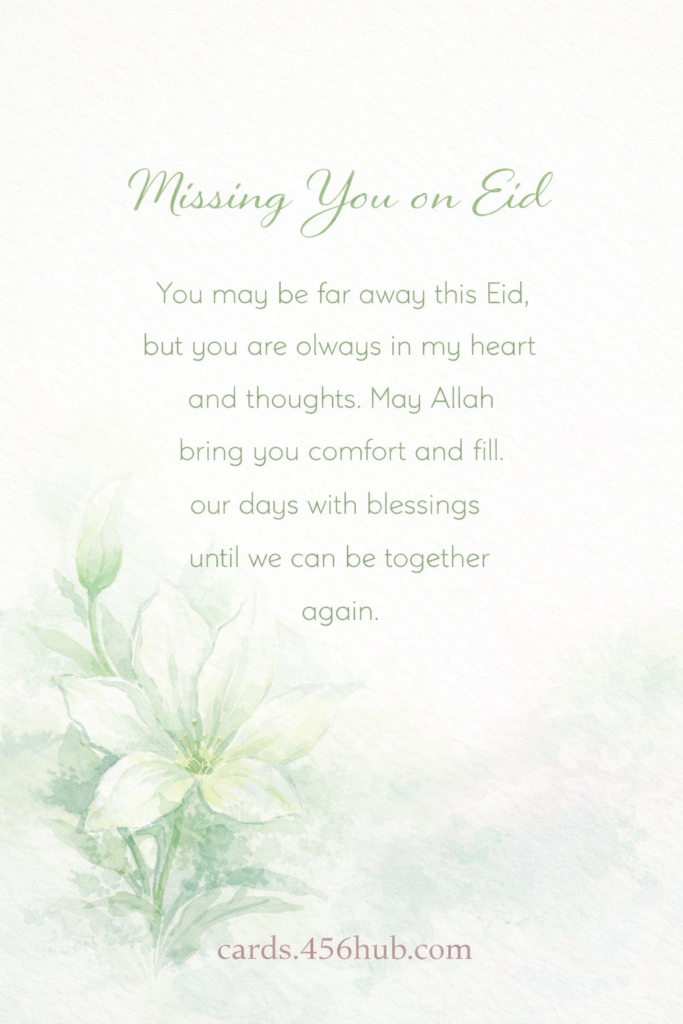 Missing You on Eid
You may be far away this Eid,
but you are olways in my heart
and thoughts. May Allah
bring you comfort and fill.
our days with blessings
until we can be together
again.
cards.456hub.com